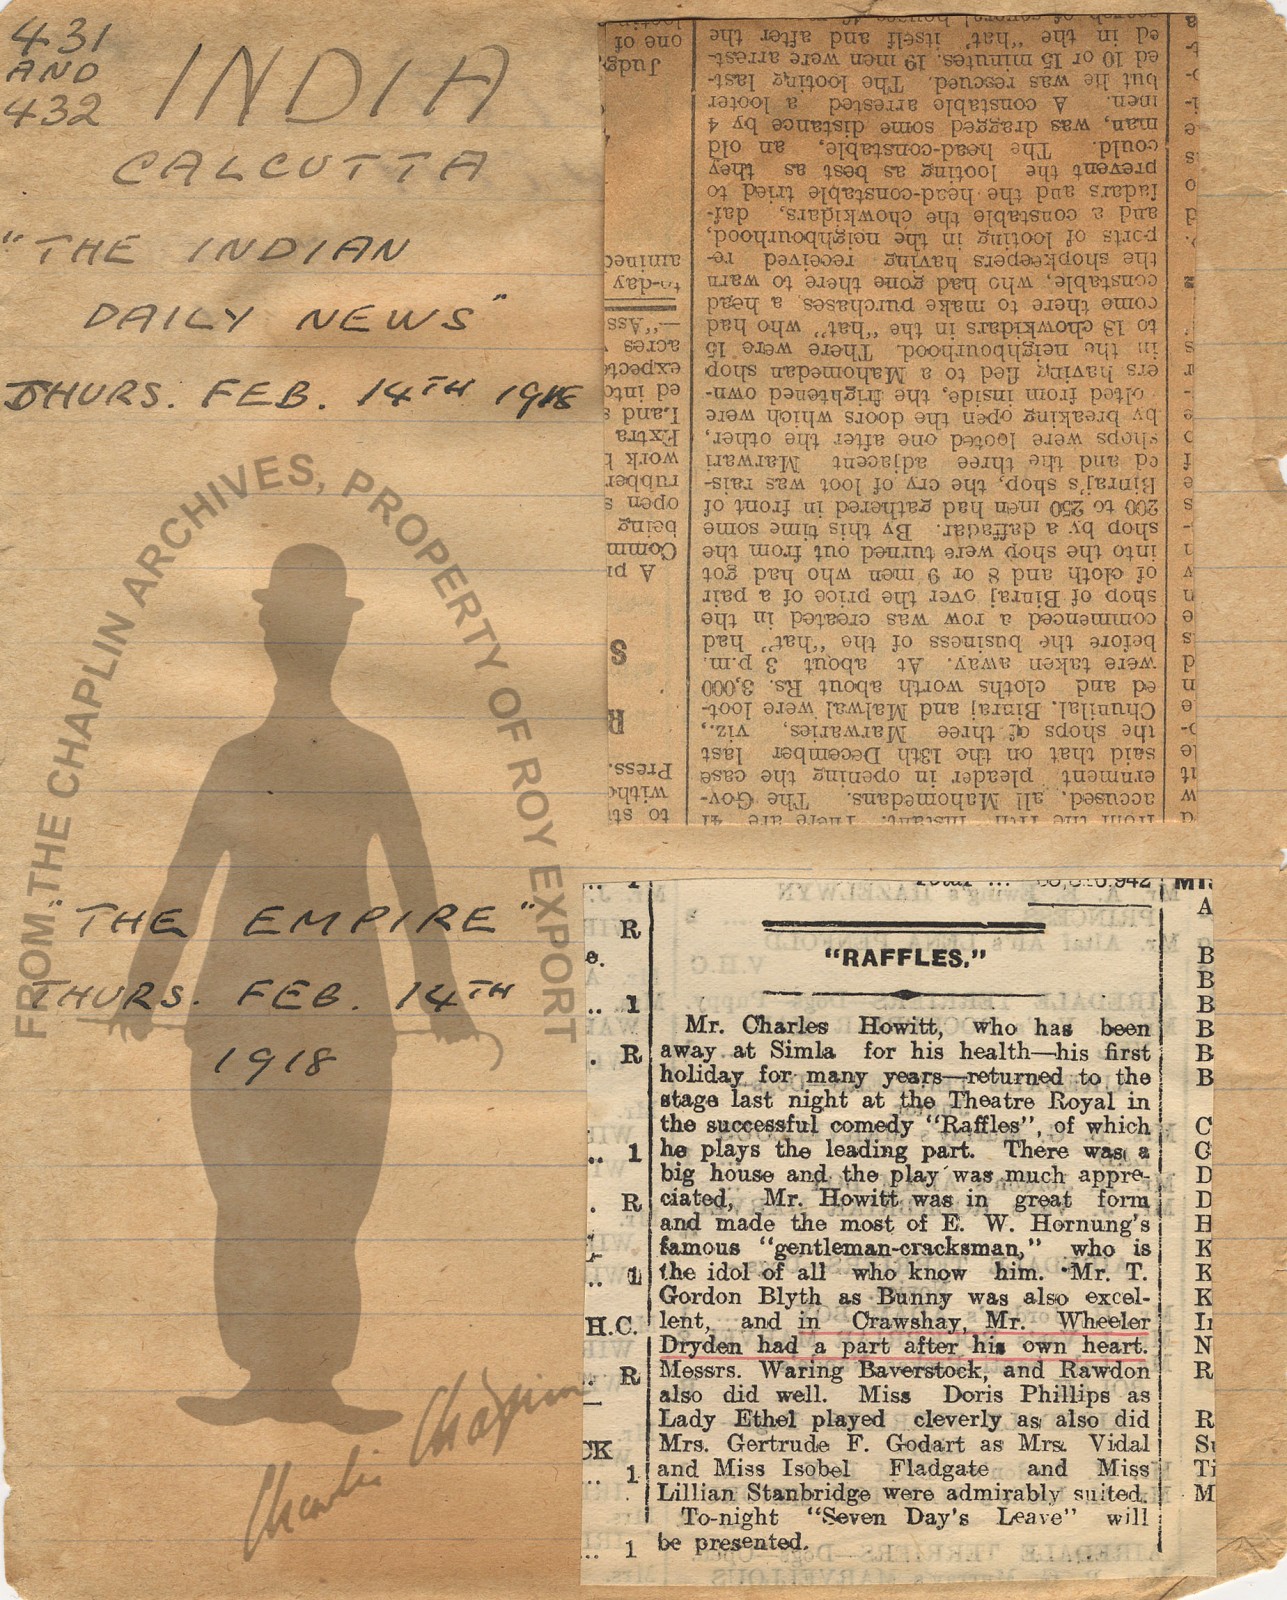 431
AND
432
INDIA
CALCUTTA
"THE INDIAN
DAILY NEWS"
THURS. FEB. 14TH 1918
FROM THE CHAPLIN ARCHIVES, PROPERTY OF ROY EXPORT
"THE EMPIRE"
THURS. FEB. 14TH
1918
Charlie Chaplin
ed in the "hat" itself and after the
ed 10 or 15 minutes. 19 men were arrest-
but he was rescued. The looting last-
men. A constable arrested a looter
man, was dragged some distance by 4
could. The head-constable, an old
prevent the looting as best as they
fadars and the head-constable tried to
and a constable the chowkidars, daf-
ports of looting in the neighbourhood,
the shopkeepers having received re-
constable, who had gone there to warn
come there to make purchases a head
to 18 chowkidars in the "hat" who had
in the neighbourhood. There were 15
ers having fled to a Mahomedan shop
olted from inside, the frightened own-
by breaking open the doors which were
shops were looted one after the other,
ed and the three adjacent Marwari
Binraj's shop, the cry of loot was rais-
200 to 250 men had gathered in front of
shop by a daffadar. By this time some
into the shop were turned out from the
of cloth and 8 or 9 men who had got
shop of Binraj over the price of a pair
commenced a row was created in the
before the business of the "hat" had
were taken away. At about 3 p.m.
ed and cloths worth about Rs. 3,000
Chunilal. Binraj and Malwal were loot-
the shops of three Marwaries, viz.,
said that on the 13th December last
ernment pleader in opening the case
accused, all Mahomedans. The Gov-
from the 11th instant. There are 41
"RAFFLES."
Mr. Charles Howitt, who has been
away at Simla for his health—his first
holiday for many years—returned to the
stage last night at the Theatre Royal in
the successful comedy "Raffles", of which
he plays the leading part. There was a
big house and the play was much appre-
ciated, Mr. Howitt was in great form
and made the most of E. W. Hornung's
famous "gentleman-cracksman," who is
the idol of all who know him. Mr. T.
Gordon Blyth as Bunny was also excel-
lent, and in Crawshay, Mr. Wheeler
Dryden had a part after his own heart.
Messrs. Waring Baverstock, and Rawdon
also did well. Miss Doris Phillips as
Lady Ethel played cleverly as also did
Mrs. Gertrude F. Godart as Mrs. Vidal
and Miss Isobel Fladgate and Miss
Lillian Stanbridge were admirably suited.
To-night "Seven Day's Leave" will
be presented.